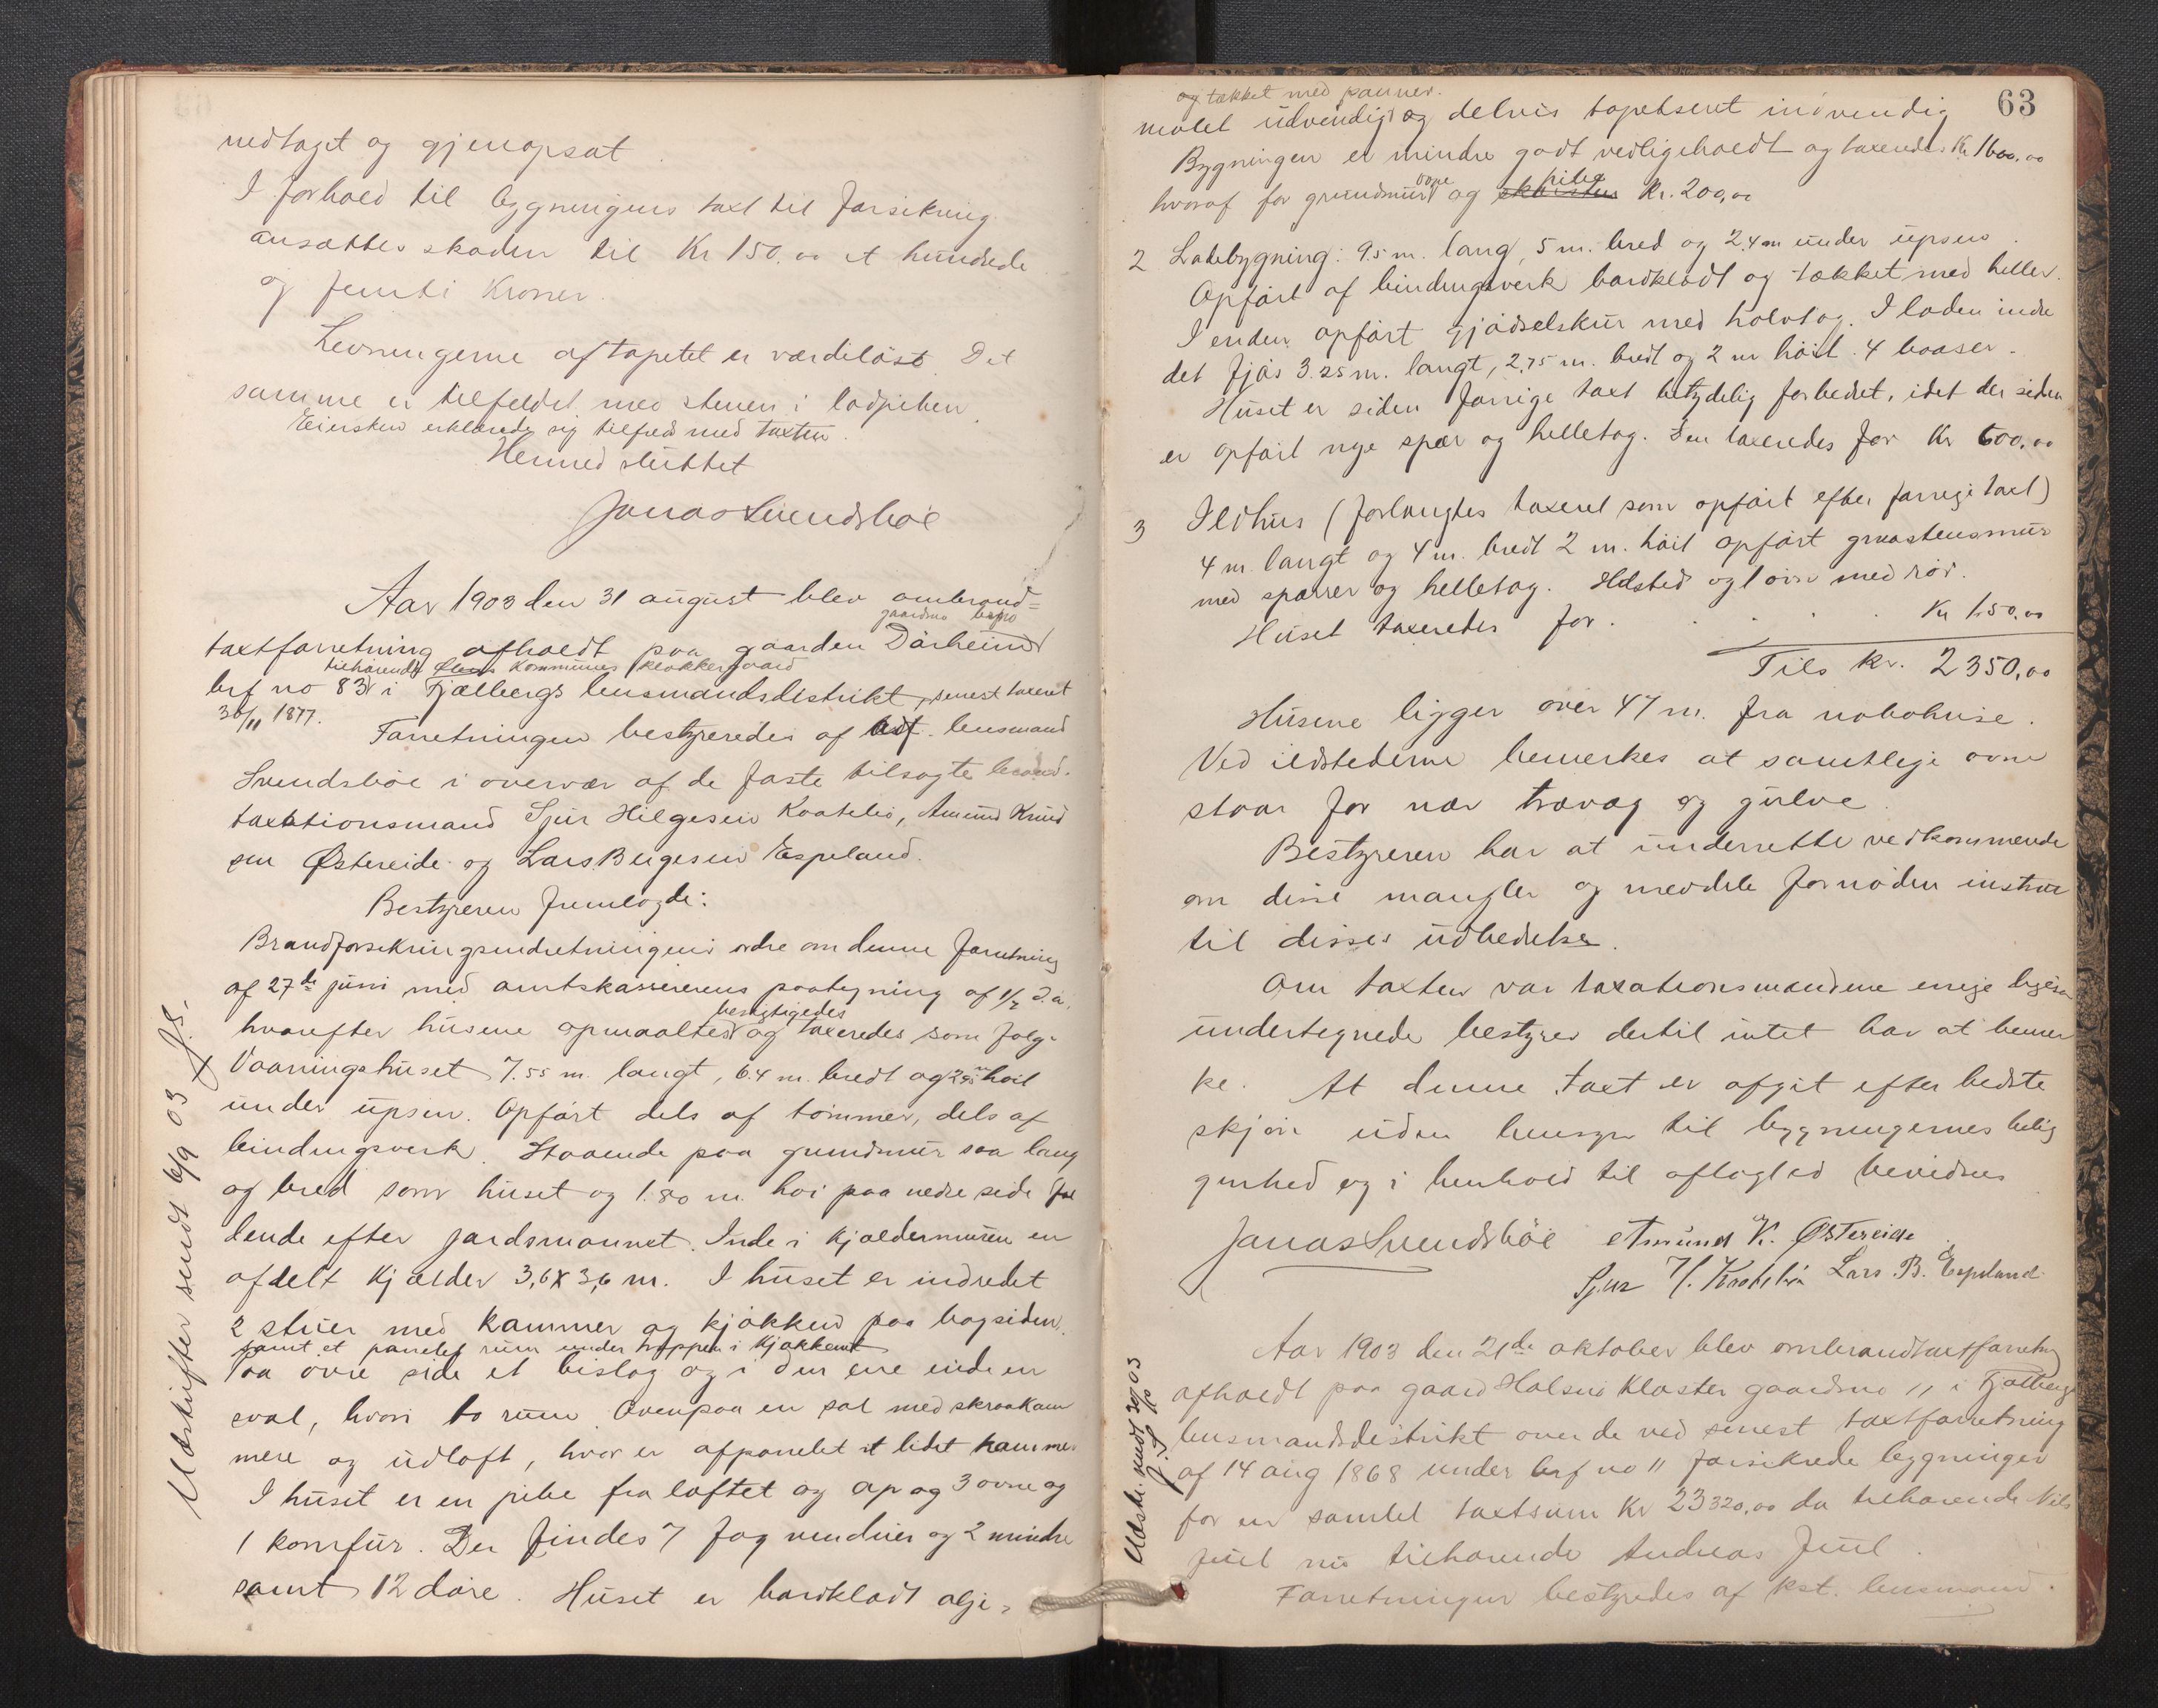 nedtaget og gjenopsat.
I forhold til bygningens taxt til forsikring
ansættes skaden til Kr 150.00 et hundrede
og femti Kroner.
Levningerne af tapetet er værdiløst. Det
samme er tilfeldet med stenen i ladpiben.
Eiersken erklærede sig tilfreds med taxten.
Hermed sluttet
Jonas Svendsbøe
Aar 1903 den 31 august blev ombrand=
gaardsno
taxtforretning afholdt paa gaarden Dørheim
tilhørende Ølens Kommunes klokkergaard
brf no 83 i Fjælbergs lensmandsdistrikt, senest taxeret
30/11 1877.
Forretningen bestyredes af kst. lensmand
Svendsbøe i overvær af de faste tilsagte brand-
taxtionsmænd Sjur Hilgesen Kaatebø, Amund Knud
sen Østereide og Lars Bergesen Espeland.
Bestyreren fremlagde:
Brandforsikringsindretningens ordre om denne forretning
af 27de juni med amtskassererens paategning af 1/7 d.a.
besigtigedes
hvorefter husene opmaaltes og taxeredes som følg.
Vaaningshuset 7.55 m. langt, 6.4 m. bredt og 2.95 m høit
under upsen. Opført dels af tømmer, dels af
bindingsverk. Staaende paa grundmur saa lang
og bred som huset og 1.80 m. høi paa nedre side fal
dende efter jordsmonnet. Inde i kjældermuren en
afdelt kjælder 3,6 x 3,6 m. I huset er indredet
2 stuer med kammer og kjøkken paa bagsiden,
samt et panelet rum under trappen i kjøkkenet
Paa øvre side et bislag og i den ene ende en
sval, hvori to rum. Ovenpaa en sal med skraakam
mere og udloft, hvor er afpanelet et lidet kammer
I huset er en pibe fra loftet og op og 3 ovne og
1 komfur. Der findes 7 fag venduer og 2 mindre
samt 12 døre. Huset er bordklædt olje-
Udskrifter sendt 6/9 03 J.S.
63
og tækket med panner.
malet udvendigt og delvis tapetseret indvendig
Bygningen er mindre godt vedligeholdt og taxeredes Kr 1600.00
ovne pibe
hvoraf for grundmur og skorsten Kr. 200,00
2 Ladebygning: 9.5 m. lang, 5 m. bred og 2.4 m under upsen.
Opført af bindingsverk bordklædt og tækket med heller.
I enden opført gjødselskur med halvtag. I laden indre
det fjøs 3.25 m. langt, 2,75 m. bredt og 2 m høit. 4 baaser.
Huset er siden forrige taxt betydelig forbedret, idet der siden
er opført nye spær og helletag. Den taxeredes for Kr 600.00
3 Ildhus (forlangtes taxeret som opført efter forrige taxt)
4 m. langt og 4 m. bredt 2 m. høit opført graastensmur
med sparrer og helletag. Ildsted og 1 ovn med rør.
Huset taxeredes for . . . . Kr 150.00
Tils kr. 2350,00
Husene ligger over 47 m. fra nabohuse.
Ved ildstederne bemerkes at samtlige ovne
staar for nær trævæg og gulve.
Bestyreren har at underrette vedkommende
om disse mangler og meddele fornøden instrux
til disses udbedelse.
Om taxten var taxationsmændene enige ligesom
undertegnede bestyrer dertil intet har at bemer
ke. At denne taxt er afgit efter bedste
skjøn uden hensyn til bygningernes belig
genhed og i henhold til aflagt ed bevidnes
Jonas Svendsbøe Amund K. Østereide
Sjur H. Kaatebø Lars B. Espeland
Aar 1903 den 21de oktober blev ombrandtaxtforretning
afholdt paa gaard Halsnø Kloster gaardsno 11 i Fjælbergs
lensmandsdistrikt over de ved senest taxtforretning
af 14 aug 1868 under brf no 11 forsikrede bygninger
for en samlet taxtsum Kr 23320,00 da tilhørende Nils
Juul nu tilhørende Andreas Juul.
Forretningen bestyredes af kst. lensmand
Udskr. sendt 30/10 03
J.S.